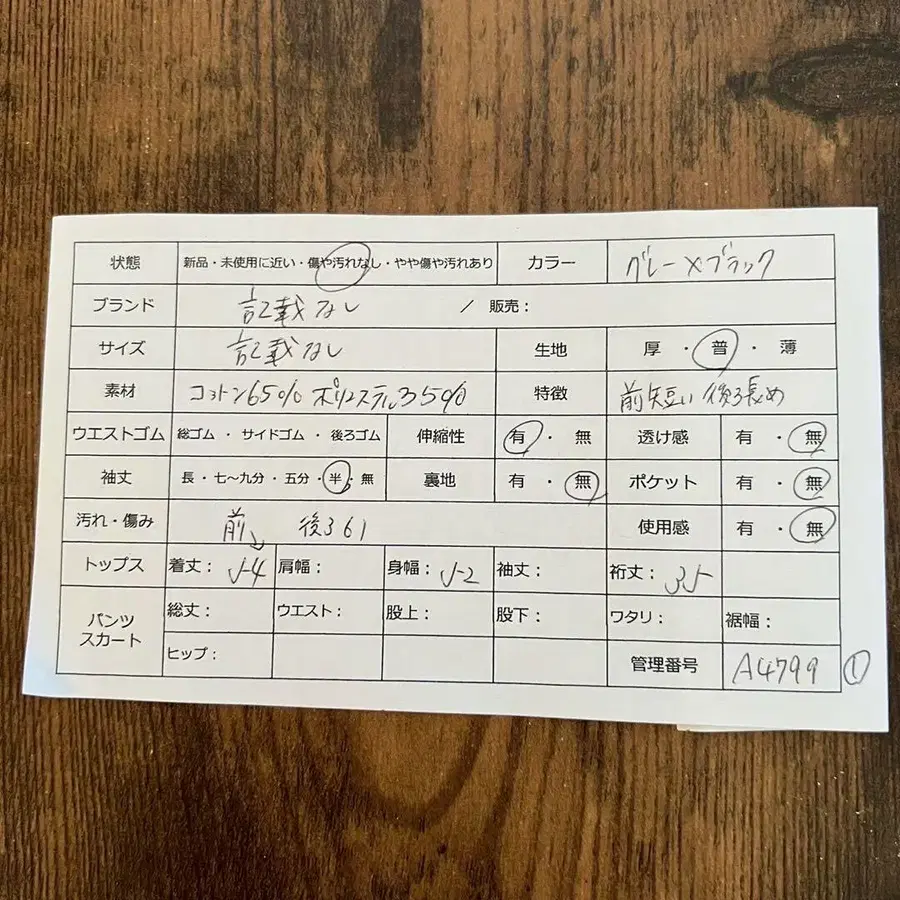 状態 新品・未使用に近い・傷や汚れなし・やや傷や汚れあり カラー グレー×ブラック
ブランド 記載なし / 販売：
サイズ 記載なし 生地 厚・普・薄
素材 コットン65% ポリエステル35% 特徴 前短い 後ろ長め
ウエストゴム 総ゴム・サイドゴム・後ろゴム 伸縮性 有・無 透け感 有・無
袖丈 長・七〜九分・五分・半・無 裏地 有・無 ポケット 有・無
汚れ・傷み 前↘ 後ろ61 使用感 有・無
トップス 着丈：54 肩幅： 身幅：52 袖丈： 裄丈：35
パンツ スカート 総丈： ウエスト： 股上： 股下： ワタリ： 裾幅：
ヒップ： 管理番号 A4799 ①